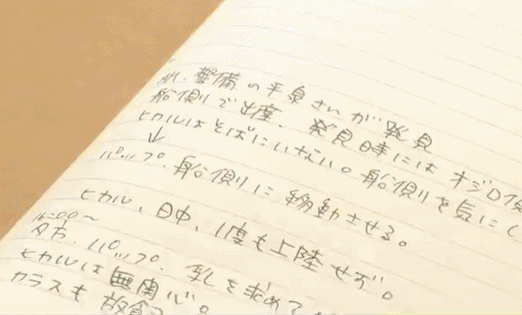 警備の平泉さんが発見
船側で出産、発見時にはオジロ
ヒカルはそばにいない。船側を気にし
↓
パップ、船側に移動させる。
ヒカル、日中、1度も上陸せず。
16:00〜
夕方、パップ、乳を求めて
ヒカルは無関心。
カラスも放食